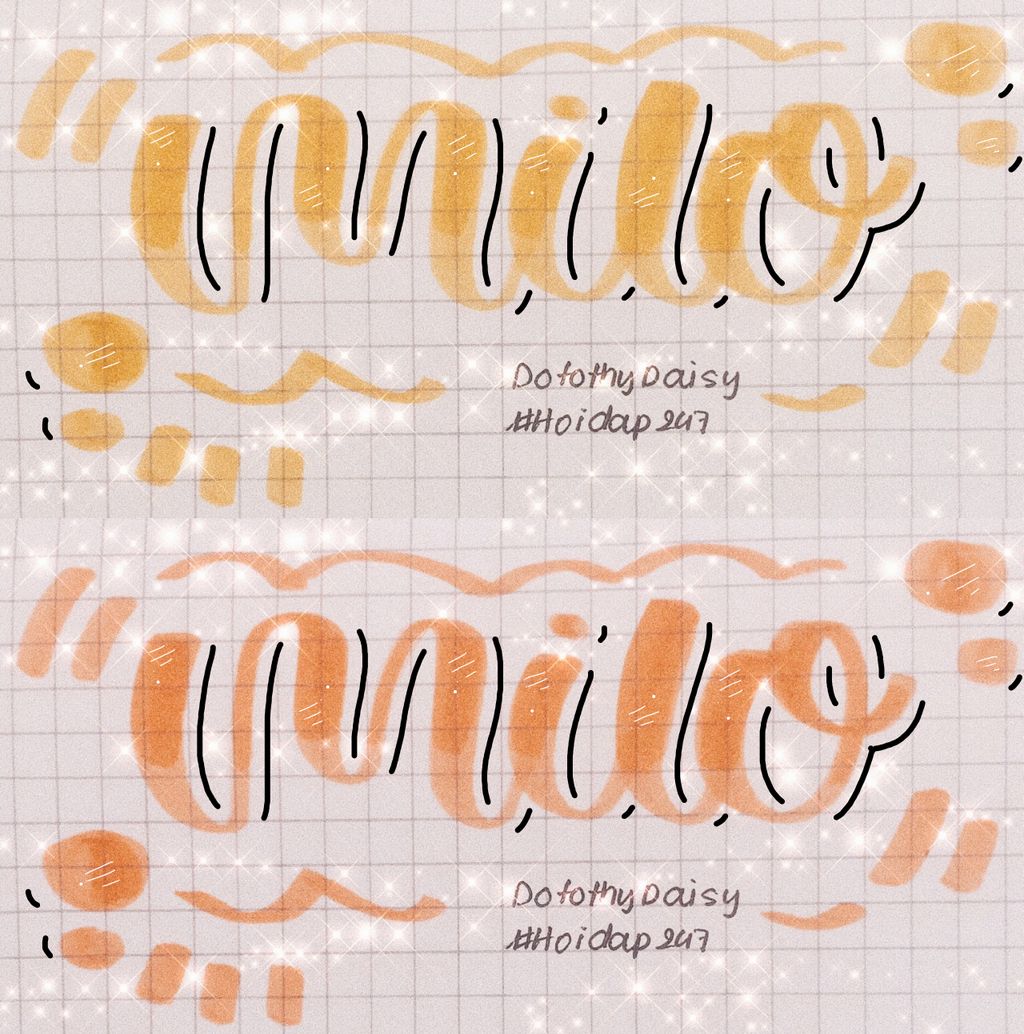 milo
Dotothy Daisy
#Hoidap 247
milo
Dotothy Daisy
#Hoidap 247